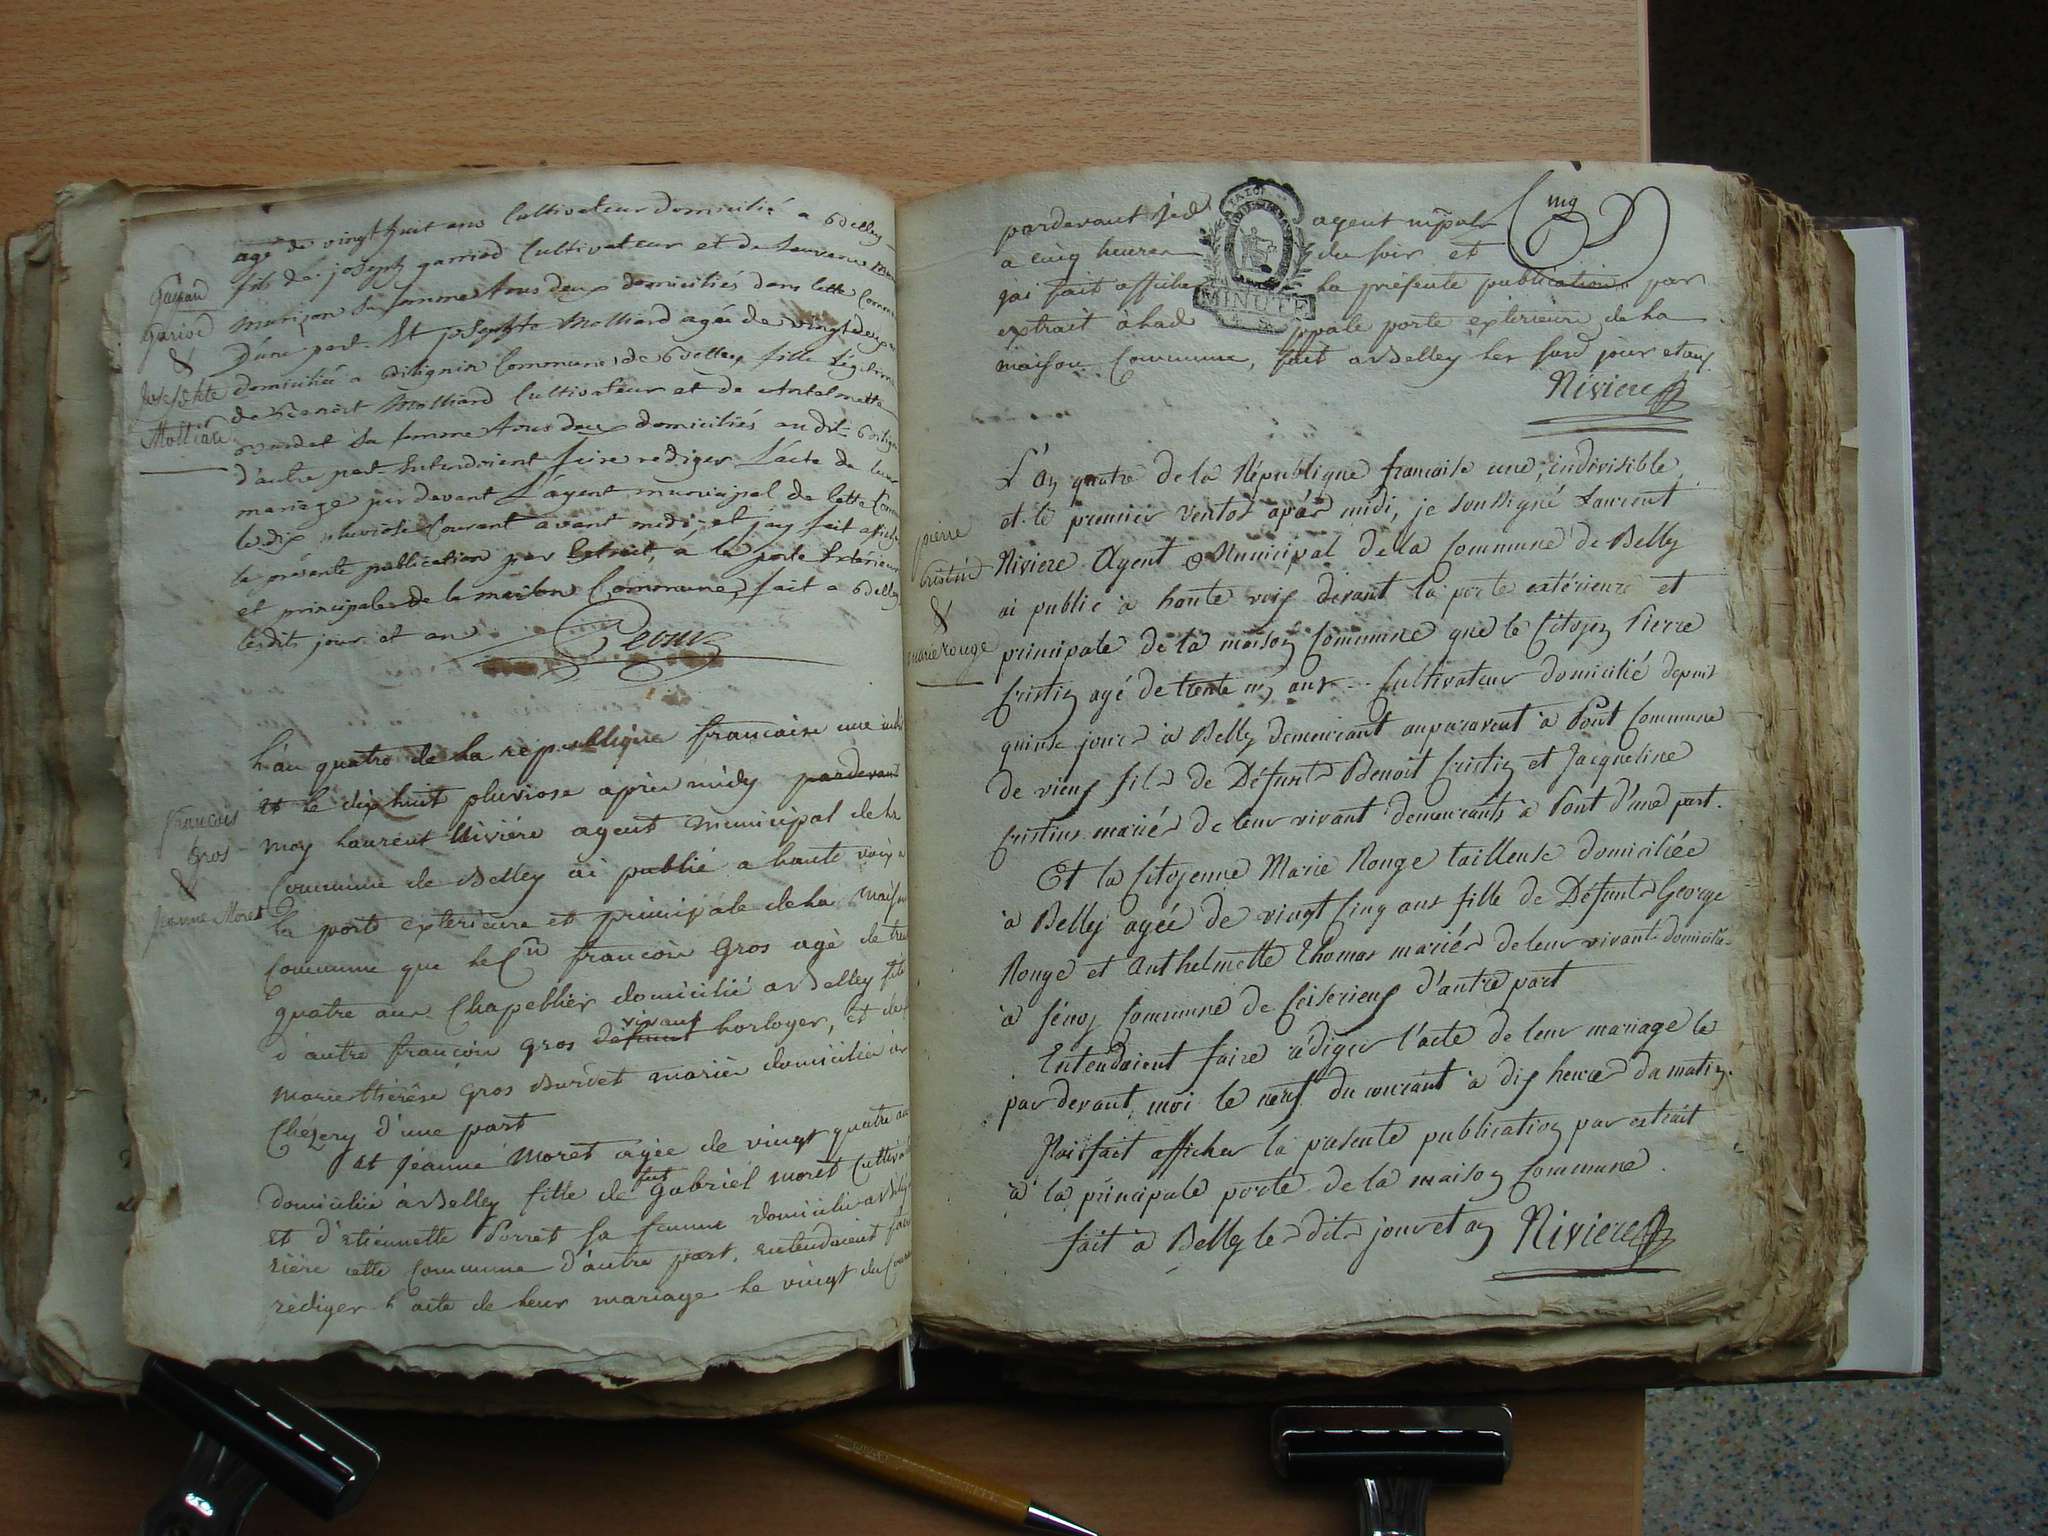 agé de vingt huit ans Cultivateur domicilié a Belley
fils de joseph Cultivateur et de
sa femme tous deux domiciliés dans cette Commu
D'une part Et josephte Molliard agée de vingt deux
domiciliée a Commune de Belley fille Légitime
de Benoist Molliard Cultivateur et de Antelmette
sa femme tous deux domiciliés audit
d'autre part Entendoient faire rediger L'acte de leur
mariage par devant L'agent municipal de cette Comm
le dix pluviose Courant avant midi, et j'ay fait affich
la présente publication par Extrait, a la porte Extérieure
et principale de la maison Commune, fait a Belley
lesdits jour et an
Josephte
Molliard
L'an quatre de la république francaise une indi
et le dix huit pluviose après midy pardevant
moy Laurent Riviére agent municipal de la
Commune de Belley ai publié a haute voix a
la porte exterieure et principale de la maison
Commune que le Cen francois Gros agé de
quatre ans Chapellier domicilié a Belley fils
d'autre francois Gros defunt vivant horloger, et de
Marie thérêse Gros Burdet mariés domiciliés à
Chézery d'une part
et Jeanne Moret agée de vingt quatre ans
domiciliée à Belley fille de feu Gabriel Moret Cultivat
et d'étiennette Porret sa femme domiciliée a
rière cette Commune d'autre part, entendoient faire
rédiger l'acte de leur mariage le vingt du Cour
francois
Gros
&
Jeanne Moret
pardevant agent mpal
a cinq heures du soir et
jai fait afficher la présente publication par
extrait à la ppale porte exterieure de la
maison Commune, fait a Belley les jour et an
MINUTE
Riviere
L'an quatre de la République francaise une, indivisible
et le premier ventos après midi, je soussigné Laurent
Riviere Agent Municipal de la Commune de Belley
ai publié à haute voix devant la porte extérieure et
principale de la maison Commune que le Citoyen Pierre
Cristin agé de trente ans Cultivateur domicilié depuis
quinse jours à Belley demeurant auparavant à Pont Commune
de vieux fils de Défunts Benoit Cristin et Jacqueline
Cristin mariés de leur vivant demeurants à Pont d'une part.
Et la Citoyenne Marie Rouge tailleuse domiciliée
à Belley agée de vingt Cinq ans fille de Défunts George
Rouge et Anthelmette Thomas mariés de leur vivant domiciliés
à Commune de Ceiserieux d'autre part
Entendoient faire rédiger l'acte de leur mariage le
par devant moi le neuf du courant à dix heures du matin.
J'ai fait afficher la présente publication par extrait
à la principale porte de la maison Commune.
fait à Belley les dits jour et an Riviere
pierre
Cristin
&
marie rouge